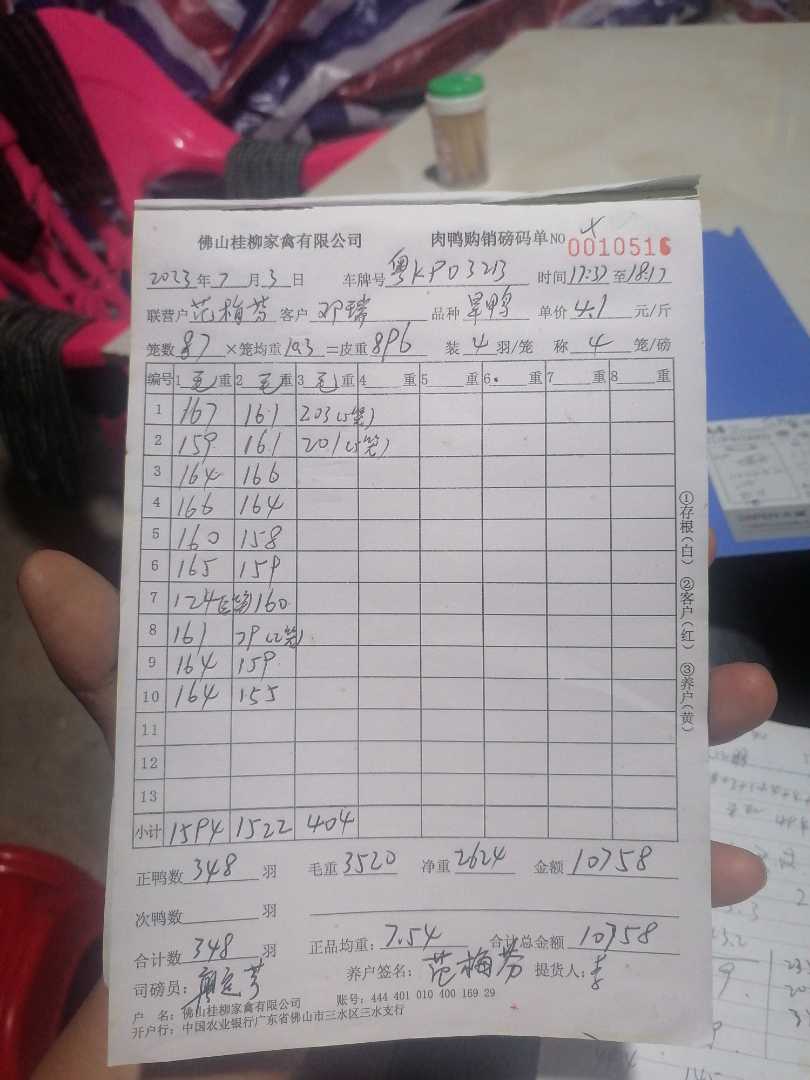 佛山桂柳家禽有限公司 肉鸭购销磅码单 NO 0010516
2023年7月3日 车牌号 粤KP03213 时间17:37至18:17
联营户 范梅芬 客户 邓瑞 品种 旱鸭 单价 4.1 元/斤
笼数 87 ×笼均重 10.3 =皮重 896 装 4 羽/笼 称 4 笼/磅
编号 1 毛 重 2 毛 重 3 毛 重 4 重 5 重 6. 重 7 重 8 重
1 167 161 203(5笼)
2 159 161 201(5笼)
3 164 166
4 166 164
5 160 158
6 165 159
7 124(3笼) 160
8 161 79(2笼)
9 164 159
10 164 155
11
12
13
小计 1594 1522 404
正鸭数 348 羽 毛重 3520 净重 2624 金额 10758
次鸭数 羽
合计数 348 羽 正品均重: 7.54 合计总金额 10758
司磅员: 养户签名: 范梅芬 提货人: 李
户 名: 佛山桂柳家禽有限公司 账号: 444 401 010 400 169 29
开户行: 中国农业银行广东省佛山市三水区三水支行
①存根(白) ②客户(红) ③养户(黄)